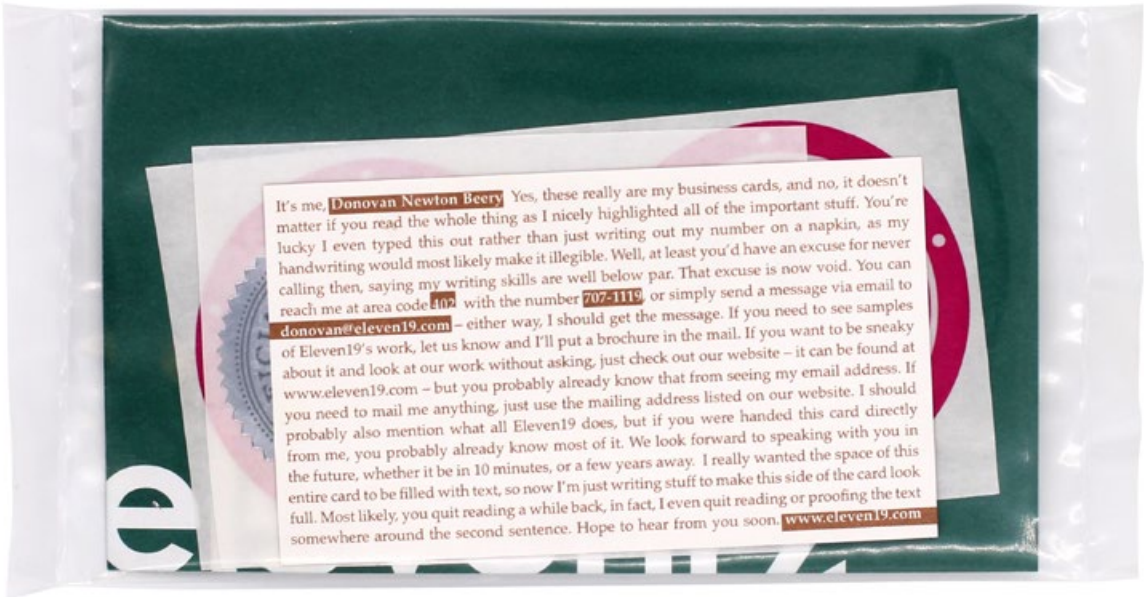 It's me, Donovan Newton Beery Yes, these really are my business cards, and no, it doesn't
matter if you read the whole thing as I nicely highlighted all of the important stuff. You're
lucky I even typed this out rather than just writing out my number on a napkin, as my
handwriting would most likely make it illegible. Well, at least you'd have an excuse for never
calling then, saying my writing skills are well below par. That excuse is now void. You can
reach me at area code 402 with the number 707-1119, or simply send a message via email to
donovan@eleven19.com – either way, I should get the message. If you need to see samples
of Eleven19's work, let us know and I'll put a brochure in the mail. If you want to be sneaky
about it and look at our work without asking, just check out our website – it can be found at
www.eleven19.com – but you probably already know that from seeing my email address. If
you need to mail me anything, just use the mailing address listed on our website. I should
probably also mention what all Eleven19 does, but if you were handed this card directly
from me, you probably already know most of it. We look forward to speaking with you in
the future, whether it be in 10 minutes, or a few years away. I really wanted the space of this
entire card to be filled with text, so now I'm just writing stuff to make this side of the card look
full. Most likely, you quit reading a while back, in fact, I even quit reading or proofing the text
somewhere around the second sentence. Hope to hear from you soon. www.eleven19.com